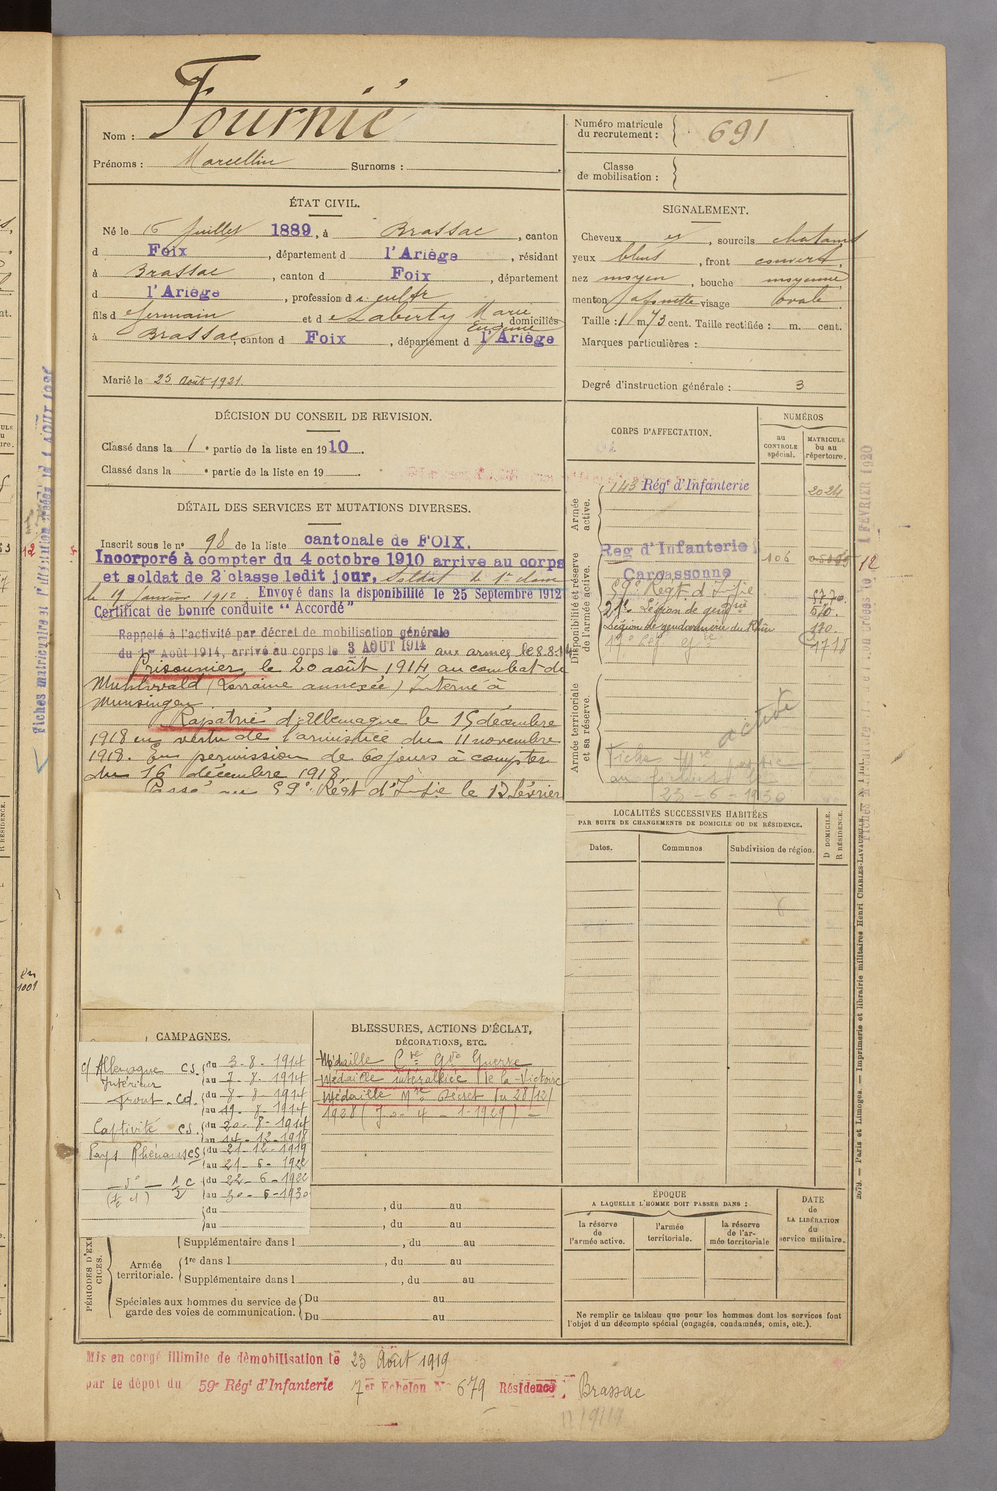 Nom : Fournié
Prénoms : Marcellin Surnoms :
Numéro matricule du recrutement : 691
Classe de mobilisation :
ÉTAT CIVIL.
Né le 6 Juillet 1889, à Brassac, canton
d Foix, département d l'Ariège, résidant
à Brassac, canton d Foix, département
d l'Ariège, profession d cultr
fils d e Germain et d e Laberty Marie Eugénie, domiciliés
à Brassac, canton d Foix, département d l'Ariège
Marié le 23 Août 1921.
SIGNALEMENT.
Cheveux et, sourcils chatains
yeux bleus, front couvert,
nez moyen, bouche moyenne
menton fossette visage ovale
Taille : 1 m 73 cent. Taille rectifiée : m. cent.
Marques particulières :
Degré d'instruction générale : 3
DÉCISION DU CONSEIL DE REVISION.
Classé dans la 1e partie de la liste en 1910.
Classé dans la e partie de la liste en 19
DÉTAIL DES SERVICES ET MUTATIONS DIVERSES.
Inscrit sous le no 98 de la liste cantonale de FOIX.
Incorporé à compter du 4 octobre 1910 arrive au corps
et soldat de 2e classe ledit jour, Soldat de 1e classe
le 19 Janvier 1912. Envoyé dans la disponibilité le 25 Septembre 1912
Certificat de bonne conduite " Accordé "
Rappelé à l'activité par décret de mobilisation générale
du 1er Août 1914, arrivé au corps le 3 AOUT 1914 aux armées le 8.8.14
Prisonnier le 20 août 1914 au combat de
Muhlwald (Lorraine annexée) Interné à
Munsingen.
Rapatrié d'Allemagne le 15 décembre
1918 en vertu de l'armistice du 11 novembre
1918. En permission de 60 jours à compter
du 16 décembre 1918.
Passé au 59e Régt d'Infie le 13 février
CORPS D'AFFECTATION.
NUMÉROS
au CONTROLE spécial.
MATRICULE ou au répertoire.
Armée active.
143 Régt d'Infanterie 2024
Disponibilité et réserve de l'armée active.
Reg d'Infanterie 106 12
Carcassonne
59e Régt d'Infie 5770
21e Légion de gendrie 510
Légion de gendarmerie du Rhin 130
Armée territoriale et sa réserve.
Fiche
active
23-6-1930
LOCALITÉS SUCCESSIVES HABITÉES
PAR SUITE DE CHANGEMENTS DE DOMICILE OU DE RÉSIDENCE.
Dates. Communes Subdivision de région.
D DOMICILE. R RÉSIDENCE.
CAMPAGNES.
c/ Allemagne
Intérieur CS. du 3-8-1914
au 7-8-1914
front Cd. du 8-8-1914
au 19-8-1914
Captivité CS. du 20-8-1914
au 14-12-1918
Pays Rhénans CS du 21-12-1919
au 21-6-1922
do 1/2 C du 22-6-1922
au 30-6-1930
du
au
BLESSURES, ACTIONS D'ÉCLAT,
DÉCORATIONS, ETC.
Médaille Cve Gde Guerre
Médaille interalliée de la Victoire
Médaille Mre Décret du 28/12/
1928 (J.o. 4-1-1929)
PÉRIODES D'EXERCICES.
, du au
, du au
Supplémentaire dans l , du au
Armée territoriale.
1re dans l , du au
Supplémentaire dans l , du au
Spéciales aux hommes du service de garde des voies de communication.
Du au
Du au
ÉPOQUE
A LAQUELLE L'HOMME DOIT PASSER DANS :
la réserve de l'armée active.
l'armée territoriale.
la réserve de l'armée territoriale
DATE de LA LIBÉRATION du service militaire.
Ne remplir ce tableau que pour les hommes dont les services font
l'objet d'un décompte spécial (engagés, condamnés, omis, etc.).
Mis en congé illimité de démobilisation le 23 Août 1919
par le dépôt du 59e Régt d'Infanterie 7er Echelon No 679 Résidence : Brassac
2679. — Paris et Limoges. — Imprimerie et librairie militaires Henri CHARLES-LAVAUZELLE.